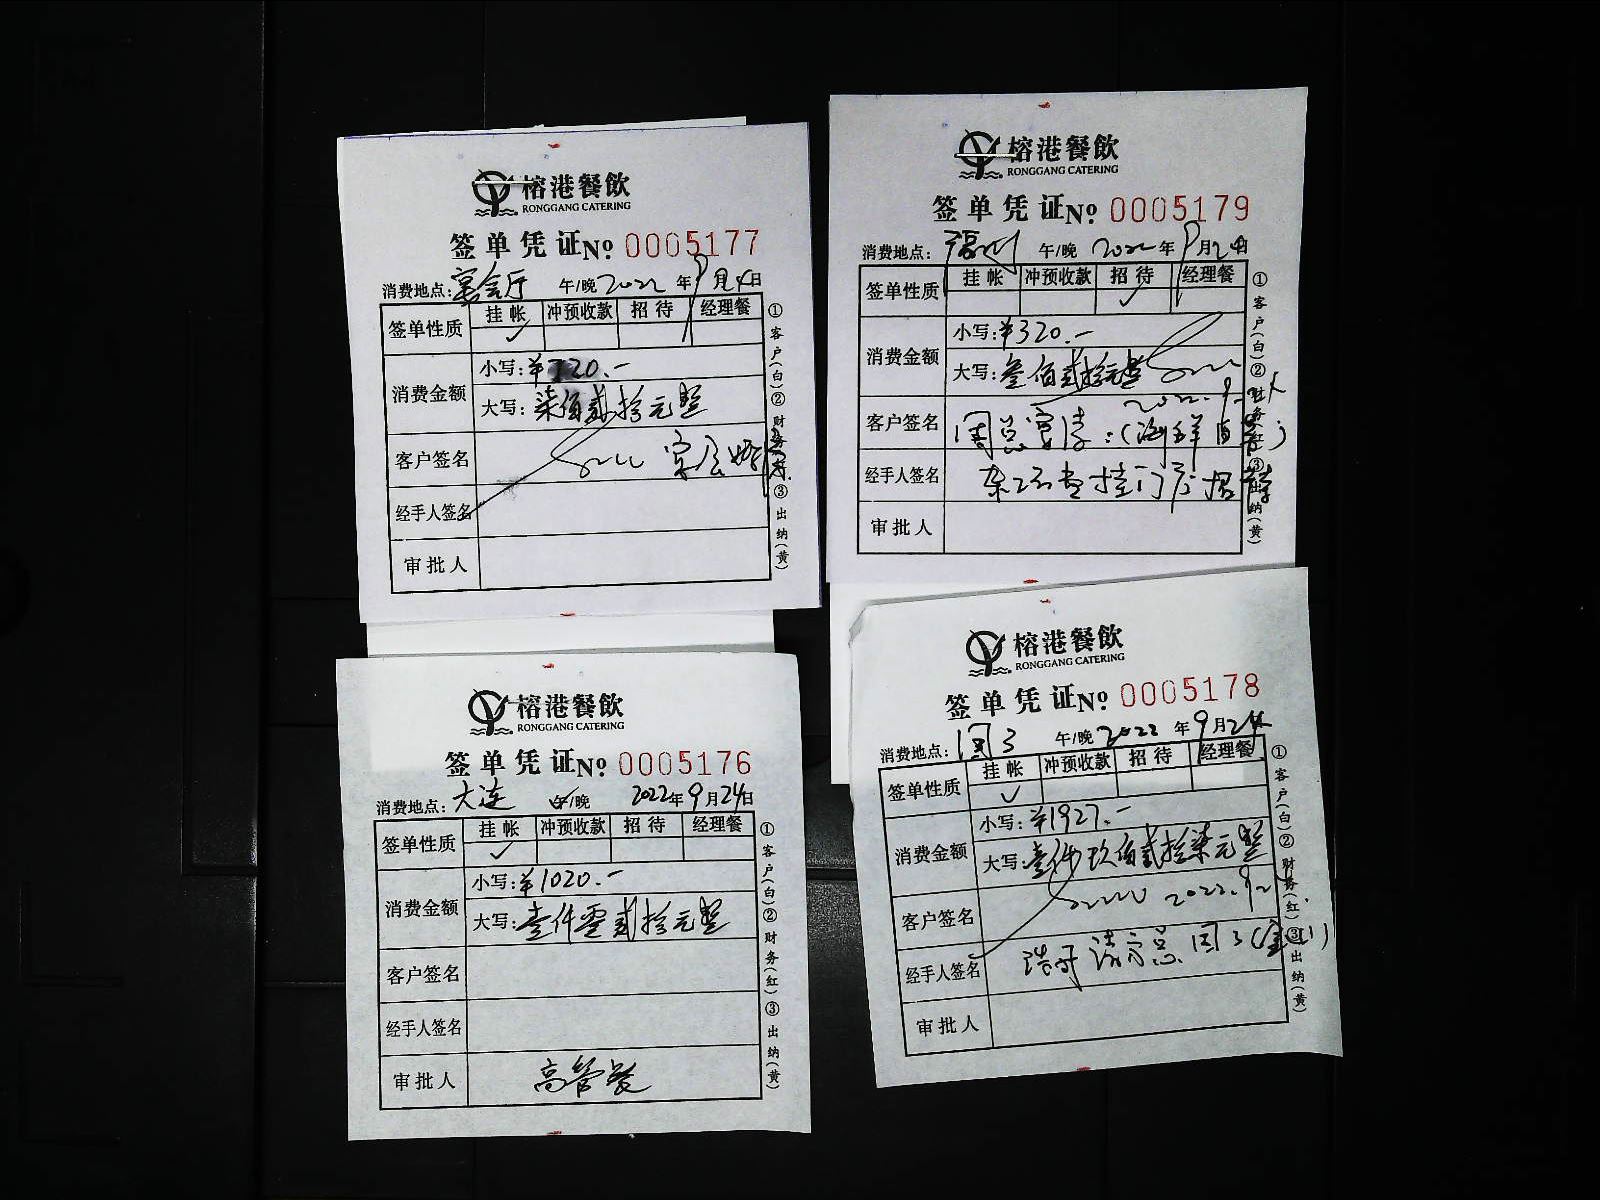 榕港餐飲
RONGGANG CATERING
签单凭证№ 0005177
消费地点：宴会厅 午/晚 2022年9月24日
签单性质 挂帐 冲预收款 招待 经理餐
✓
消费金额 小写：¥720.-
大写：柒佰贰拾元整
客户签名 宴会
经手人签名
审批人
①客户(白)②财务(红)③出纳(黄)
榕港餐飲
RONGGANG CATERING
签单凭证№ 0005179
消费地点： 午/晚 2022年9月24日
签单性质 挂帐 冲预收款 招待 经理餐
✓
消费金额 小写：¥320.-
大写：叁佰贰拾元整
2022.9.
客户签名 周总宴请：(海鲜
经手人签名 挂门 招待
审批人
①客户(白)②财务(红)③出纳(黄)
榕港餐飲
RONGGANG CATERING
签单凭证№ 0005176
消费地点：大连 午/晚 2022年9月24日
签单性质 挂帐 冲预收款 招待 经理餐
✓
消费金额 小写：¥1020.-
大写：壹仟零贰拾元整
客户签名
经手人签名
审批人 高管餐
①客户(白)②财务(红)③出纳(黄)
榕港餐飲
RONGGANG CATERING
签单凭证№ 0005178
消费地点： 午/晚 2022年9月24日
签单性质 挂帐 冲预收款 招待 经理餐
✓
消费金额 小写：¥1927.-
大写：壹仟玖佰贰拾柒元整
客户签名 2022.9.2
经手人签名 请 总
审批人
①客户(白)②财务(红)③出纳(黄)